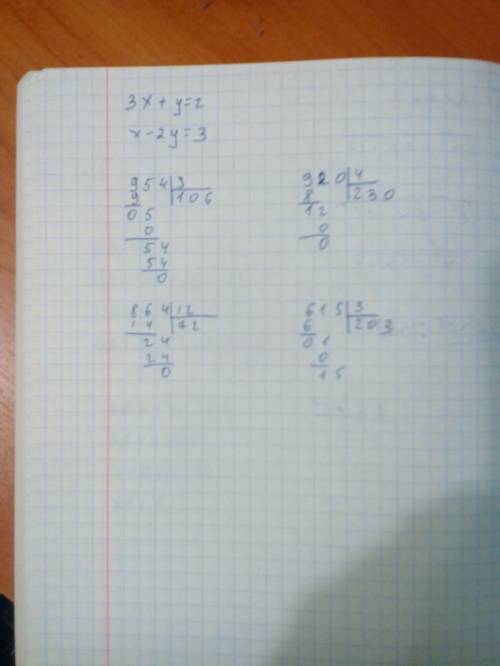 3x + y = 2
x - 2y = 3
954|9
9 |106
05
0
54
54
0
920|4
8 |230
12
0
0
864|12
14 |72
24
24
0
615|3
6 |203
01
0
15